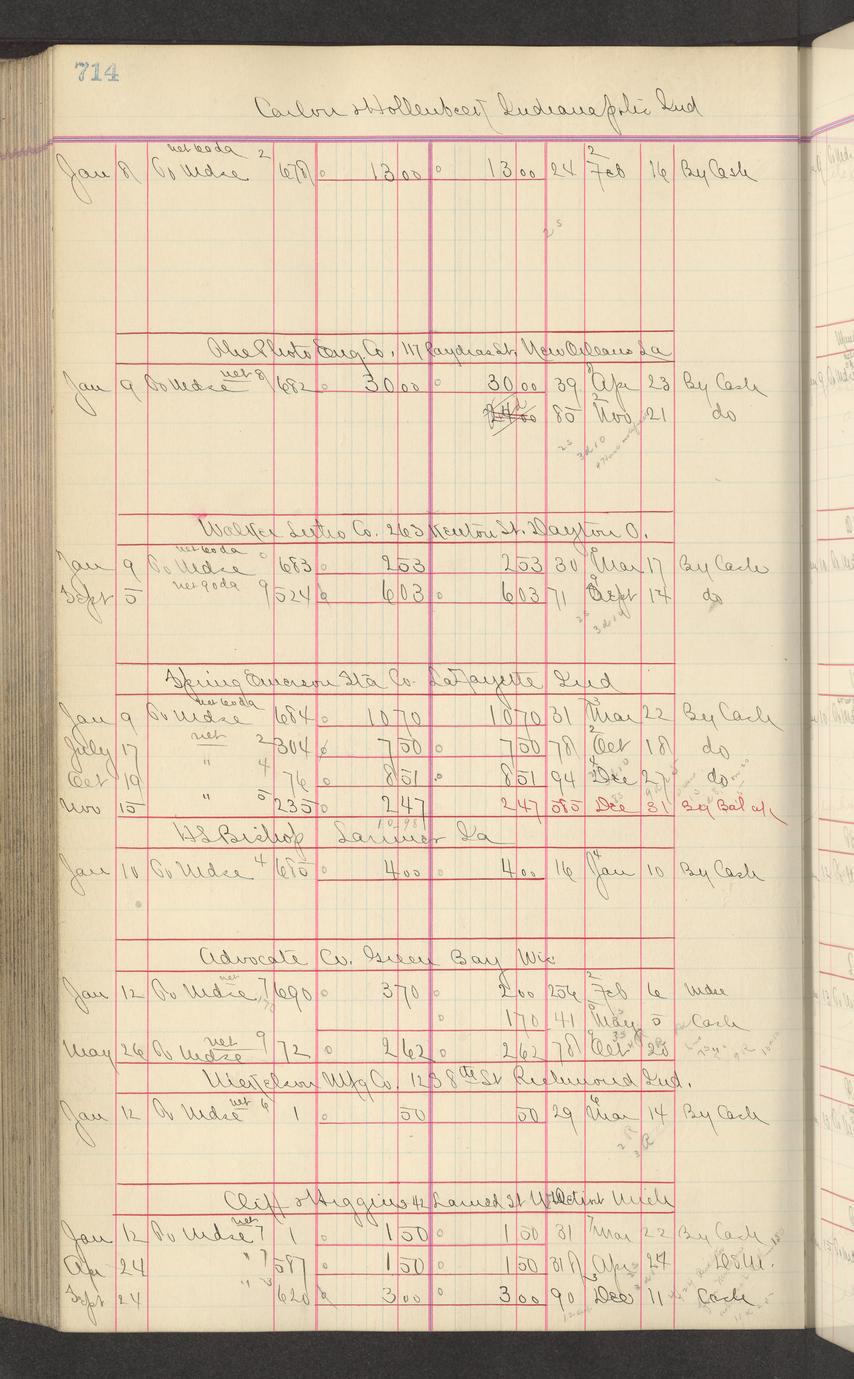 714
Carlon & Hollenbeck Indianapolis Ind
net 60 da 2
Jan 8 To Mdse 678 13 00 13 00 24 Feb 16 By Cash
The Photo Eng Co. 117 Poydras St. New Orleans La
net 8
Jan 9 To Mdse 682 30 00 30 00 39 Apr 23 By Cash
24 00 85 Nov 21 do
Walker Litho Co. 263 Kenton St. Dayton O.
net 60 da
Jan 9 To Mdse 683 2 53 2 53 30 Mar 17 By Cash
Sept 5 net 90 da 9 524 6 03 6 03 71 Sept 14 do
Spring Emerson Sta Co. LaFayette Ind
net 60 da
Jan 9 To Mdse 684 10 70 10 70 31 Mar 22 By Cash
July 17 net 2 304 7 50 7 50 78 Oct 18 do
Oct 19 " 4 76 8 51 8 51 94 Dec 27 do
Nov 15 " 5 235 2 47 2 47 585 Dec 31 By Bal a/c
HS Bishop Larimer Ia
Jan 10 To Mdse 4 685 4 00 4 00 16 Jan 10 By Cash
Advocate Co. Green Bay Wis
net
Jan 12 To Mdse 7 690 3 70 2 00 256 Feb 6 Mdse
1 70 41 May 5 Cash
May 26 To Mdse net 9 72 2 62 2 62 78 Oct 20
Mfg Co. 123 8th St Richmond Ind.
Jan 12 To Mdse net 6 1 50 50 29 Mar 14 By Cash
Cliff & Higgins 42 Larned St W Detroit Mich
net
Jan 12 To Mdse 7 1 1 50 1 50 31 Mar 22 By Cash
Apr 24 " 7 587 1 50 1 50 318 Apr 24
Sept 24 " 3 620 3 00 3 00 90 Dec 11 Cash